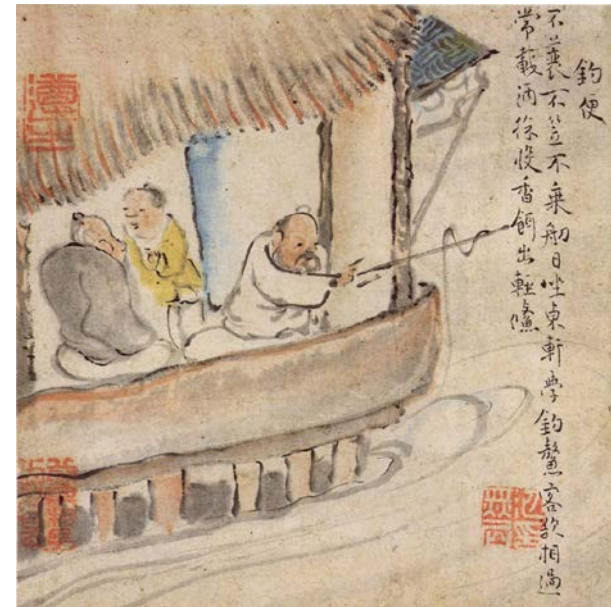 釣便
不蓑不笠不乘舠日坐東軒學釣鰲客欲相過
常載酒徐投香餌出輕鰷